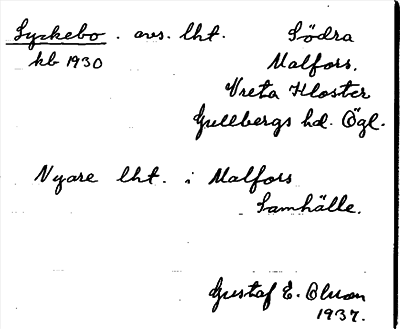 Lyckebo. avs. lht. Södra
kb 1930 Malfors,
Vreta Kloster
Gullbergs hd. Ögl.
Nyare lht. i Malfors
Samhälle.
Gustaf E. Olsson
1937.